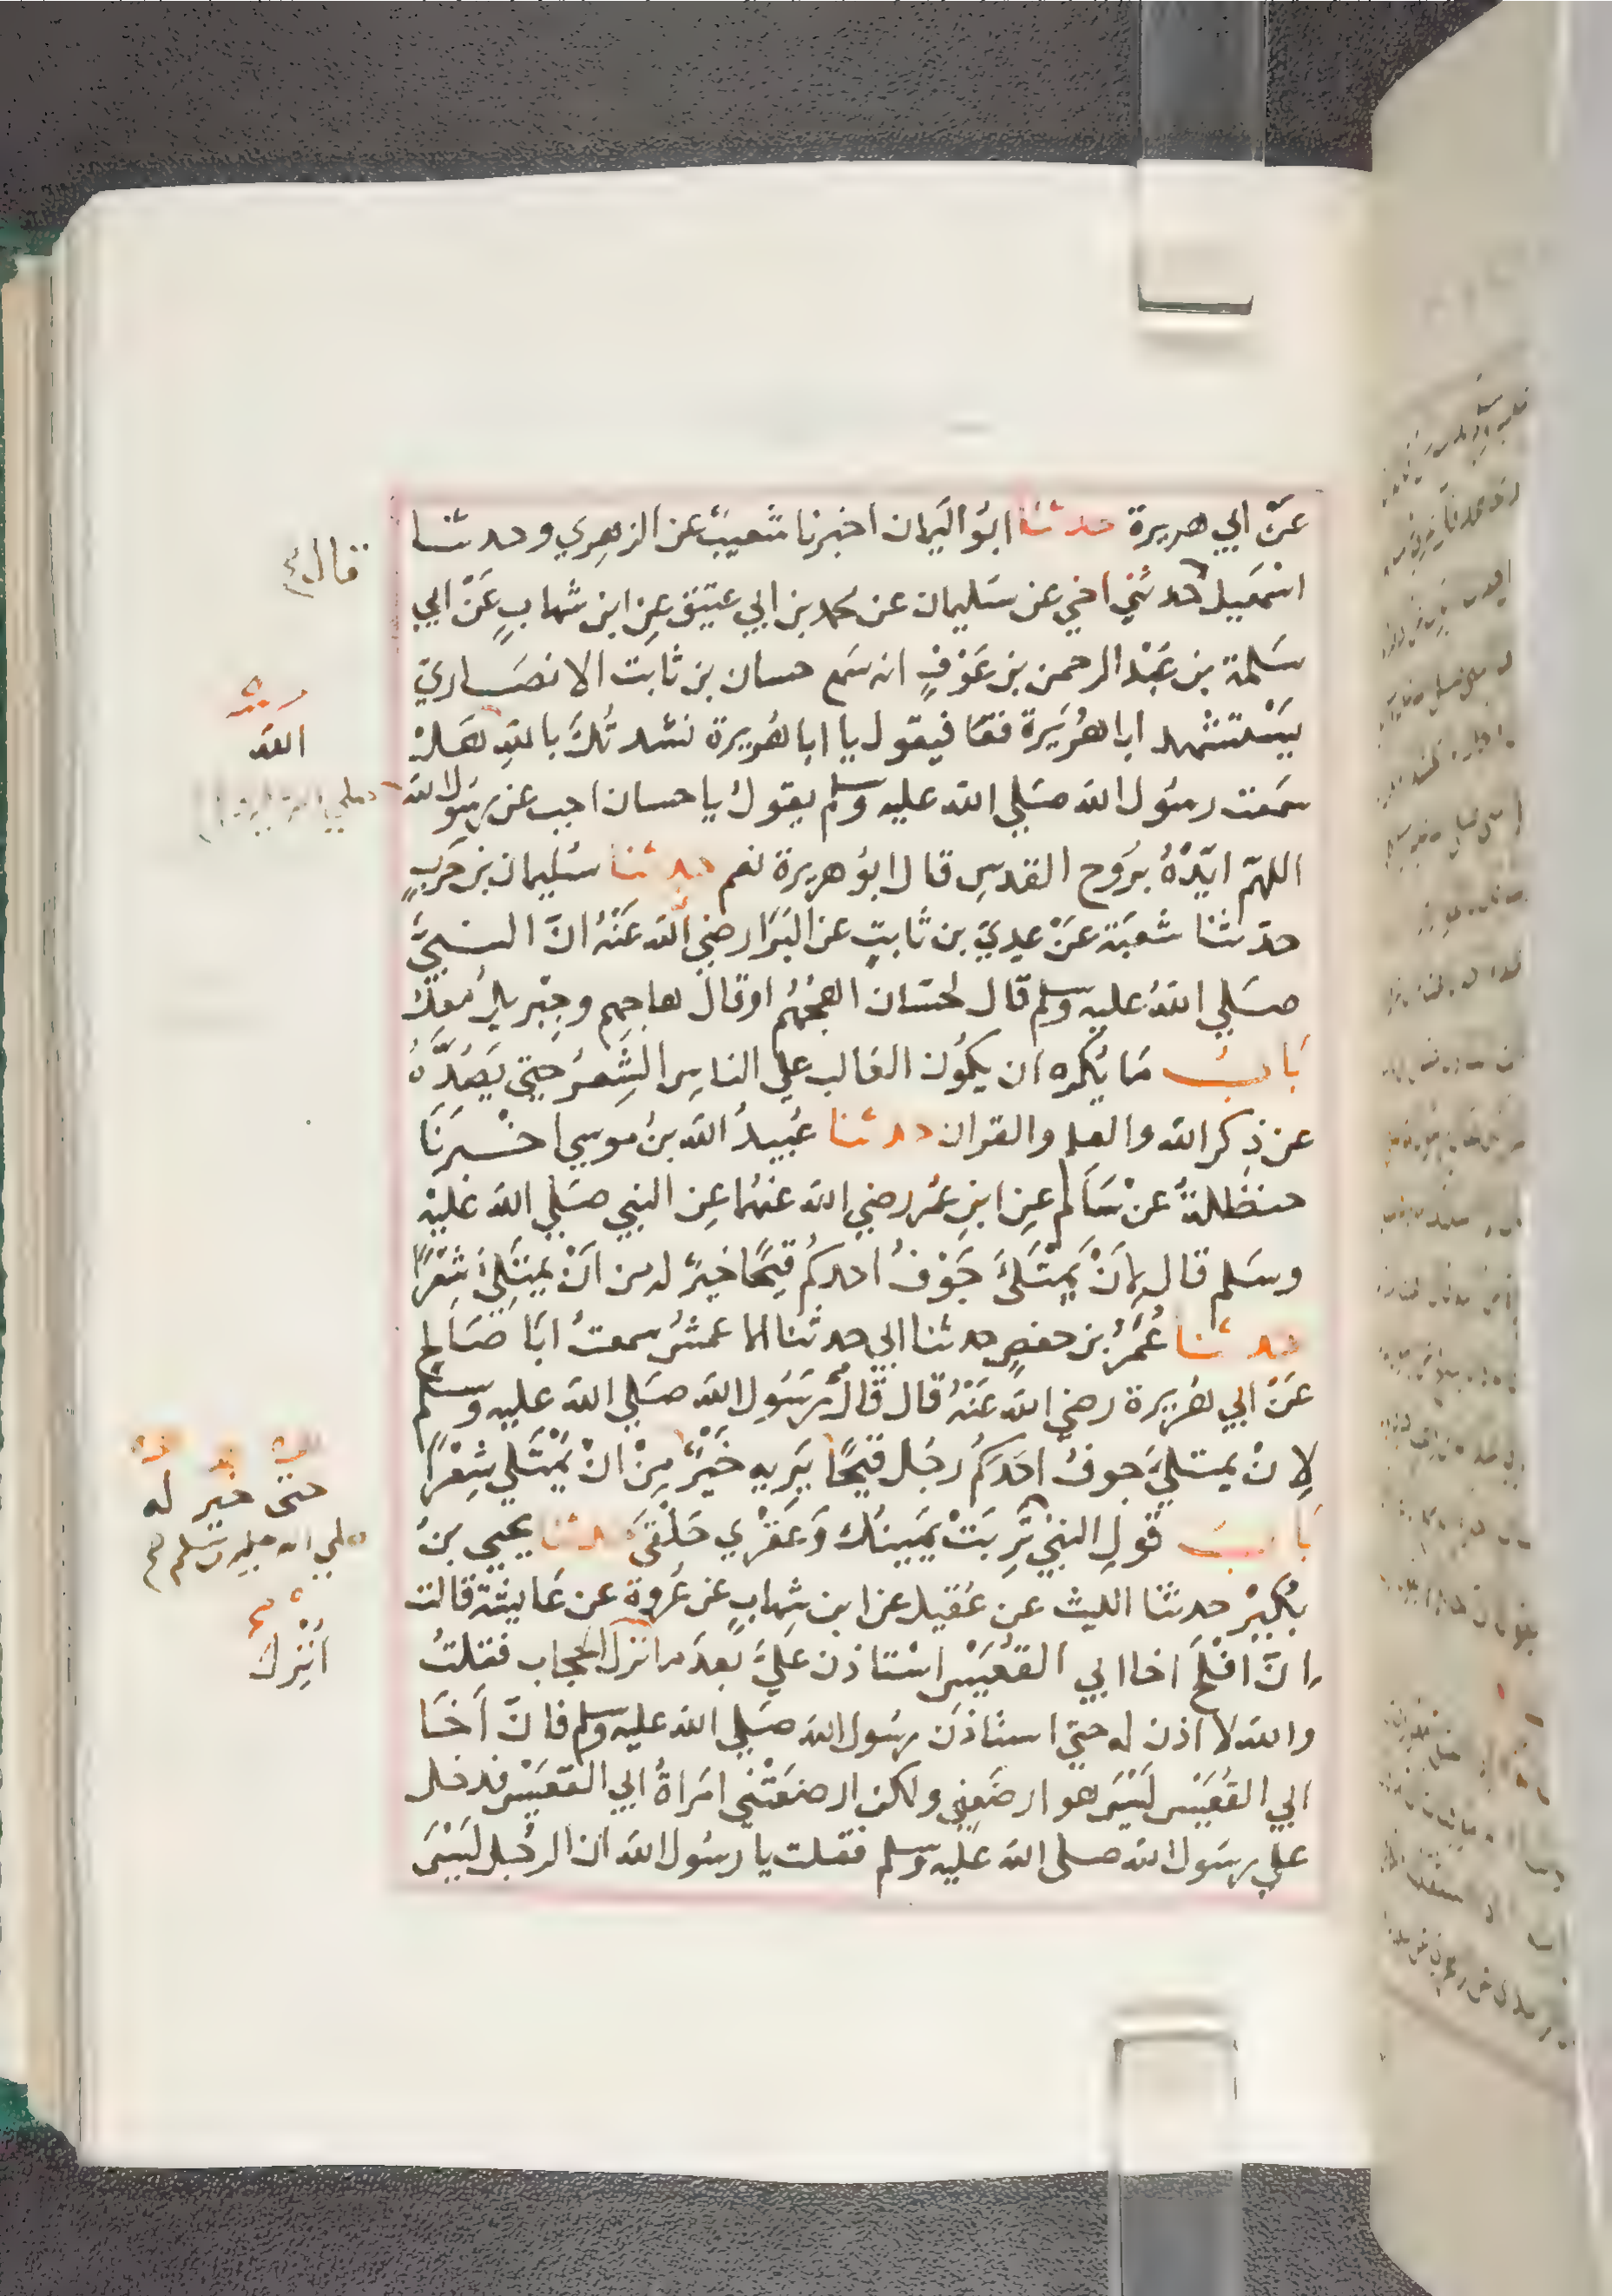 عَنْ ابي هريرة حدثنا ابُو اليَمان اخبرنا شُعيبٌ عن الزهري وحدثنا
اسْمعيل حدثني اخي عن سَليمان عن محمد بن ابي عتيق عن ابن شهابٍ عَنْ ابي
سَلمة بن عَبْد الرحمن بن عَوْفٍ انه سَمع حسان بن ثابت الانصَاريّ
يَسْتشهد ابا هُرَيَرة فيقول يا ابا هُريرة نشدتُكَ بالله هَلْ
سَمعت رسُول الله صَلي الله عليه وسلم يقولُ يا حسان اجب عن رسُول الله
اللهمّ ايّدْهُ برُوح القدسِ قال ابُو هريرة نعم حدثنا سُليمان بن حَربٍ
حدثنا شُعبَة عَنْ عدِيّ بن ثابتٍ عن البَرَا رضي الله عَنْهُ انّ النبيَّ
صَلي اللهُ عليه وسلم قال لحسّان اهجُهُم او قال هاجهم وجبْريلُ معكَ
بَابُ مَا يُكره ان يكُون الغالب علي الناسِ الشِعرُ حَتي يَصُدَّهُ
عن ذِكر الله والعلم والقران حدثنا عُبيدُ الله بنُ موسي اخْبَرنَا
حنظلةُ عنْ سَالم عنِ ابنِ عُمر رضي الله عنهُما عنِ النبي صَلي الله عَليْه
وسَلم قال لانْ يَمْتَلئَ جَوْفُ احدكُم قيْحًا خيرٌ له من انْ يمتَلِئَ شِعْرًا
حدثنا عُمَرُ بن حفصٍ حدثنا ابي حدثنا الاعمشُ سمعتُ ابَا صَالحٍ
عَنْ ابي هُريرة رضي الله عَنْهُ قال قال رَسُول الله صَلي الله عليه وسلم
لِانْ يمتلئَ جوفُ احَدكُم رجُل قيْحًا يَرِيهِ خَيْرٌ مِنْ انْ يَمْتَلي شِعْرًا
بَابُ قولِ النبيّ تَرِبَتْ يمَينُك وَعَقْري حَلْقَي حدثنا يحيي بنُ
بُكيرْ حدثنا الليث عن عُقيل عن ابن شِهابٍ عن عُروة عن عَايشة قالت
انّ افلحَ اخا ابي القعَيْسِ اسْتاذن عَليَّ بعدَ ما نزل الحجاب فقلتُ
والله لا اذن له حتي استاذنَ رسُول الله صَلي الله عليه وسلم فانّ اَخَا
ابي القُعَيْس لَيْسَ هو ارضَعني ولكن ارضعَتْني امَراةُ ابي القعَيْس فدخل
علي رسَول الله صلى الله عَليه وسلم فقلت يا رسُول الله ان الرجُل لَيْسَ
قال
الله
حتى خير له
صلي الله عليه وسلم
اُنْزِلَ